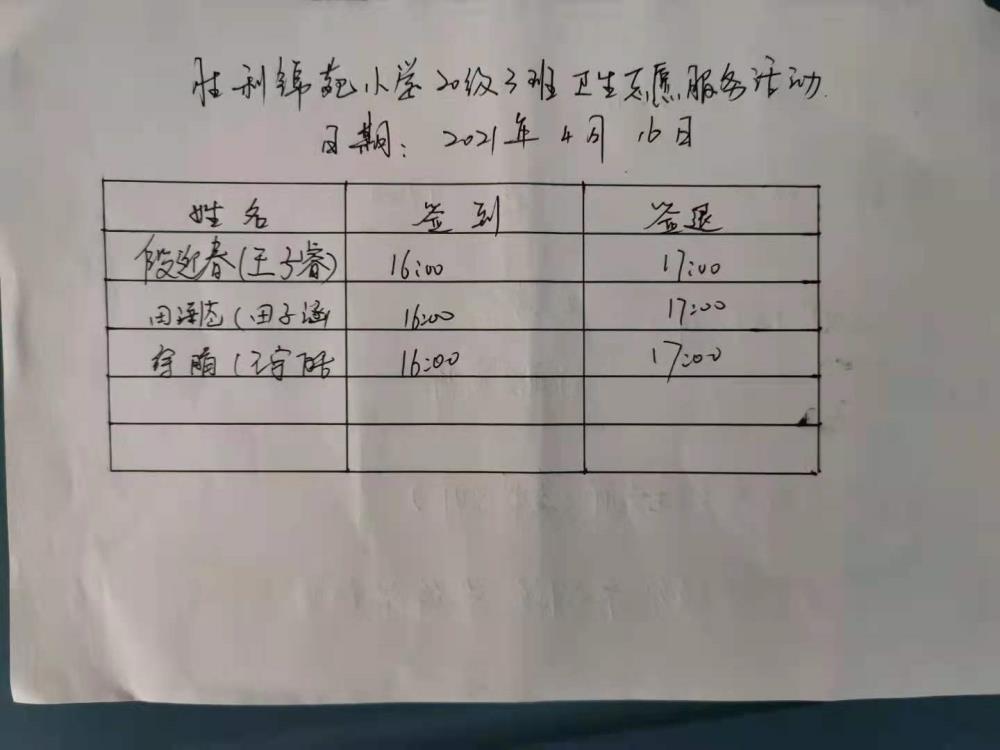 胜利锦苑小学20级3班卫生志愿服务活动
日期：2021年4月16日
姓名 签到 签退
段迎春（王子睿） 16:00 17:00
田海（田子涵 16:00 17:00
（王宇皓 16:00 17:00